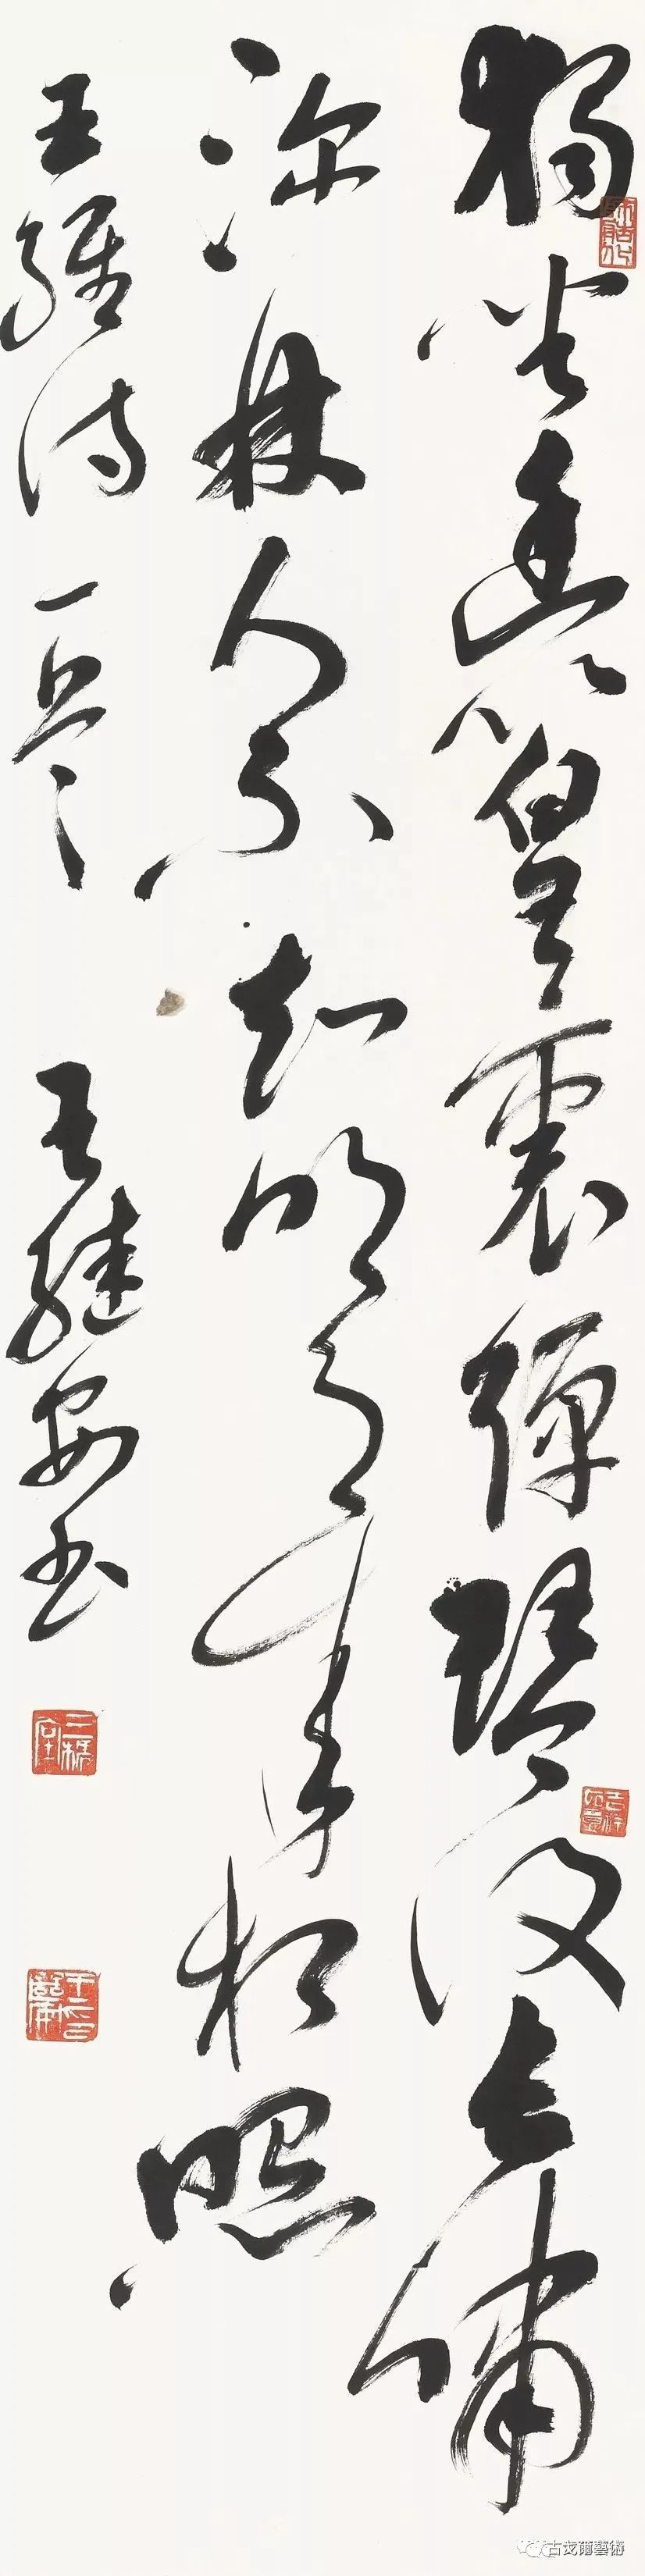 獨坐幽篁裏彈琴復長嘯
深林人不知明月來相照
王維詩一首 王继安书
古戈爾藝術